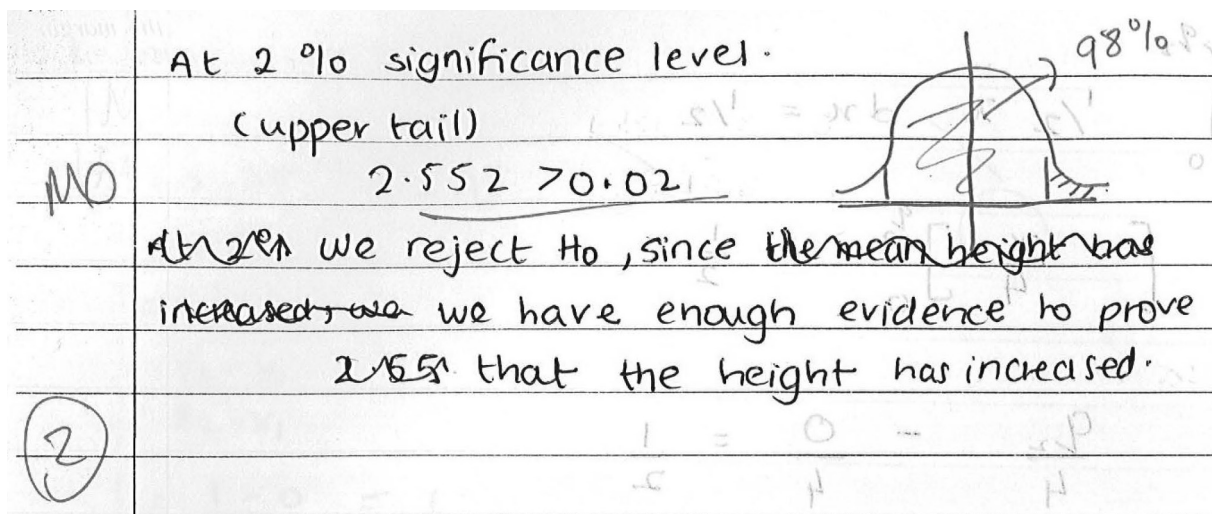 At 2 % significance level.
98%
(upper tail)
M0
2.552 > 0.02
we reject Ho, since the mean height has
increased, we have enough evidence to prove
that the height has increased.
2